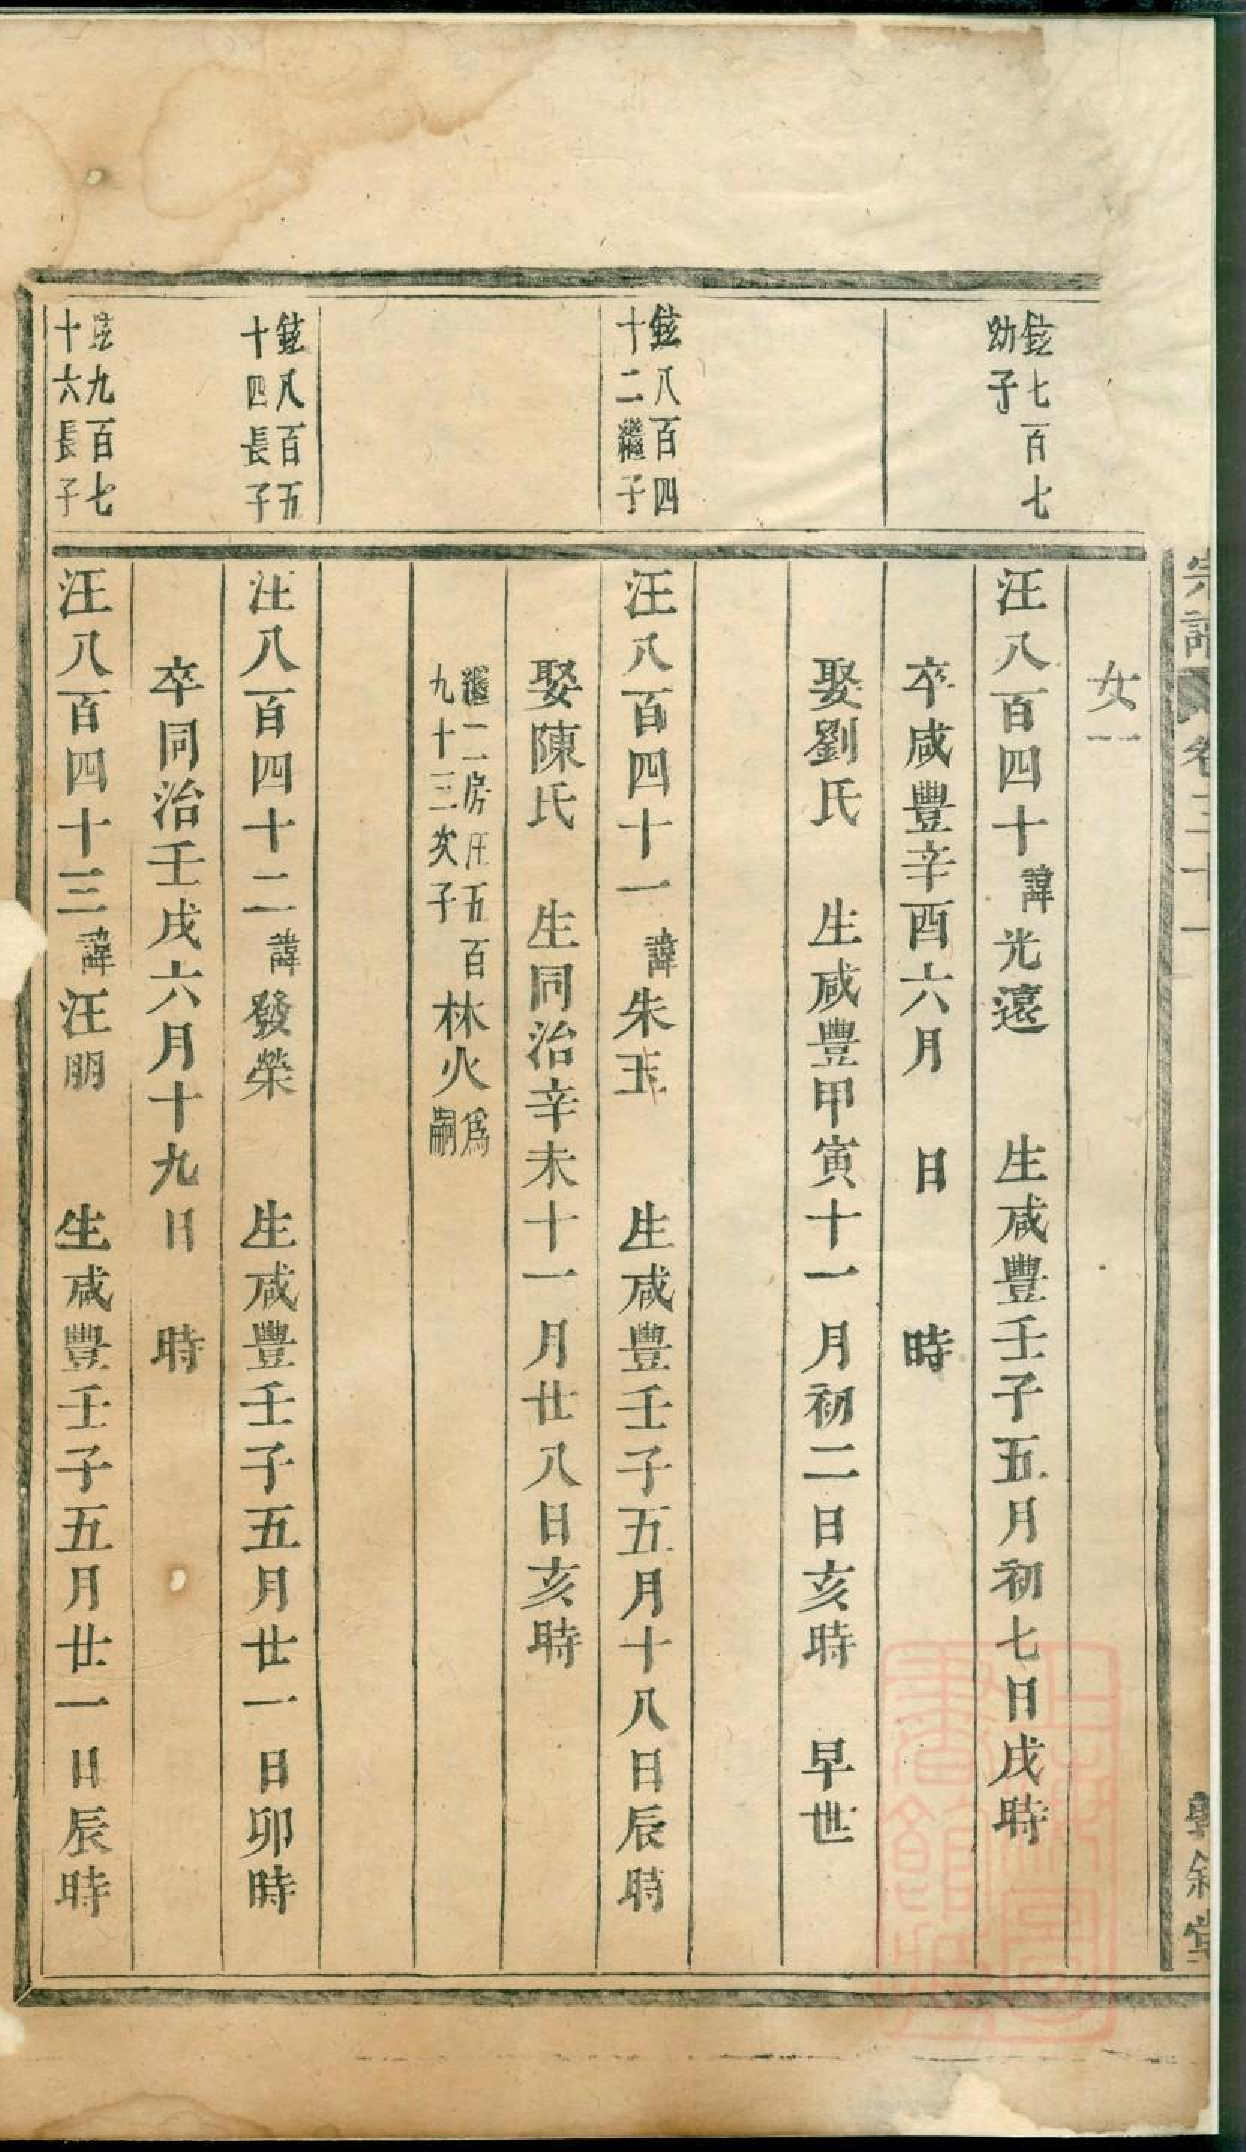 女一
鉉七百七
幼子
汪八百四十諱光遠 生咸豐壬子五月初七日戌時
卒咸豐辛酉六月 日 時
娶劉氏 生咸豐甲寅十一月初二日亥時 早世
鉉八百四
十二繼子
汪八百四十一諱朱玉 生咸豐壬子五月十八日辰時
娶陳氏 生同治辛未十一月廿八日亥時
繼二房汪五百
九十三次子林火為嗣
鉉八百五
十四長子
汪八百四十二諱發榮 生咸豐壬子五月廿一日卯時
卒同治壬戌六月十九日 時
鉉九百七
十六長子
汪八百四十三諱汪朋 生咸豐壬子五月廿一日辰時